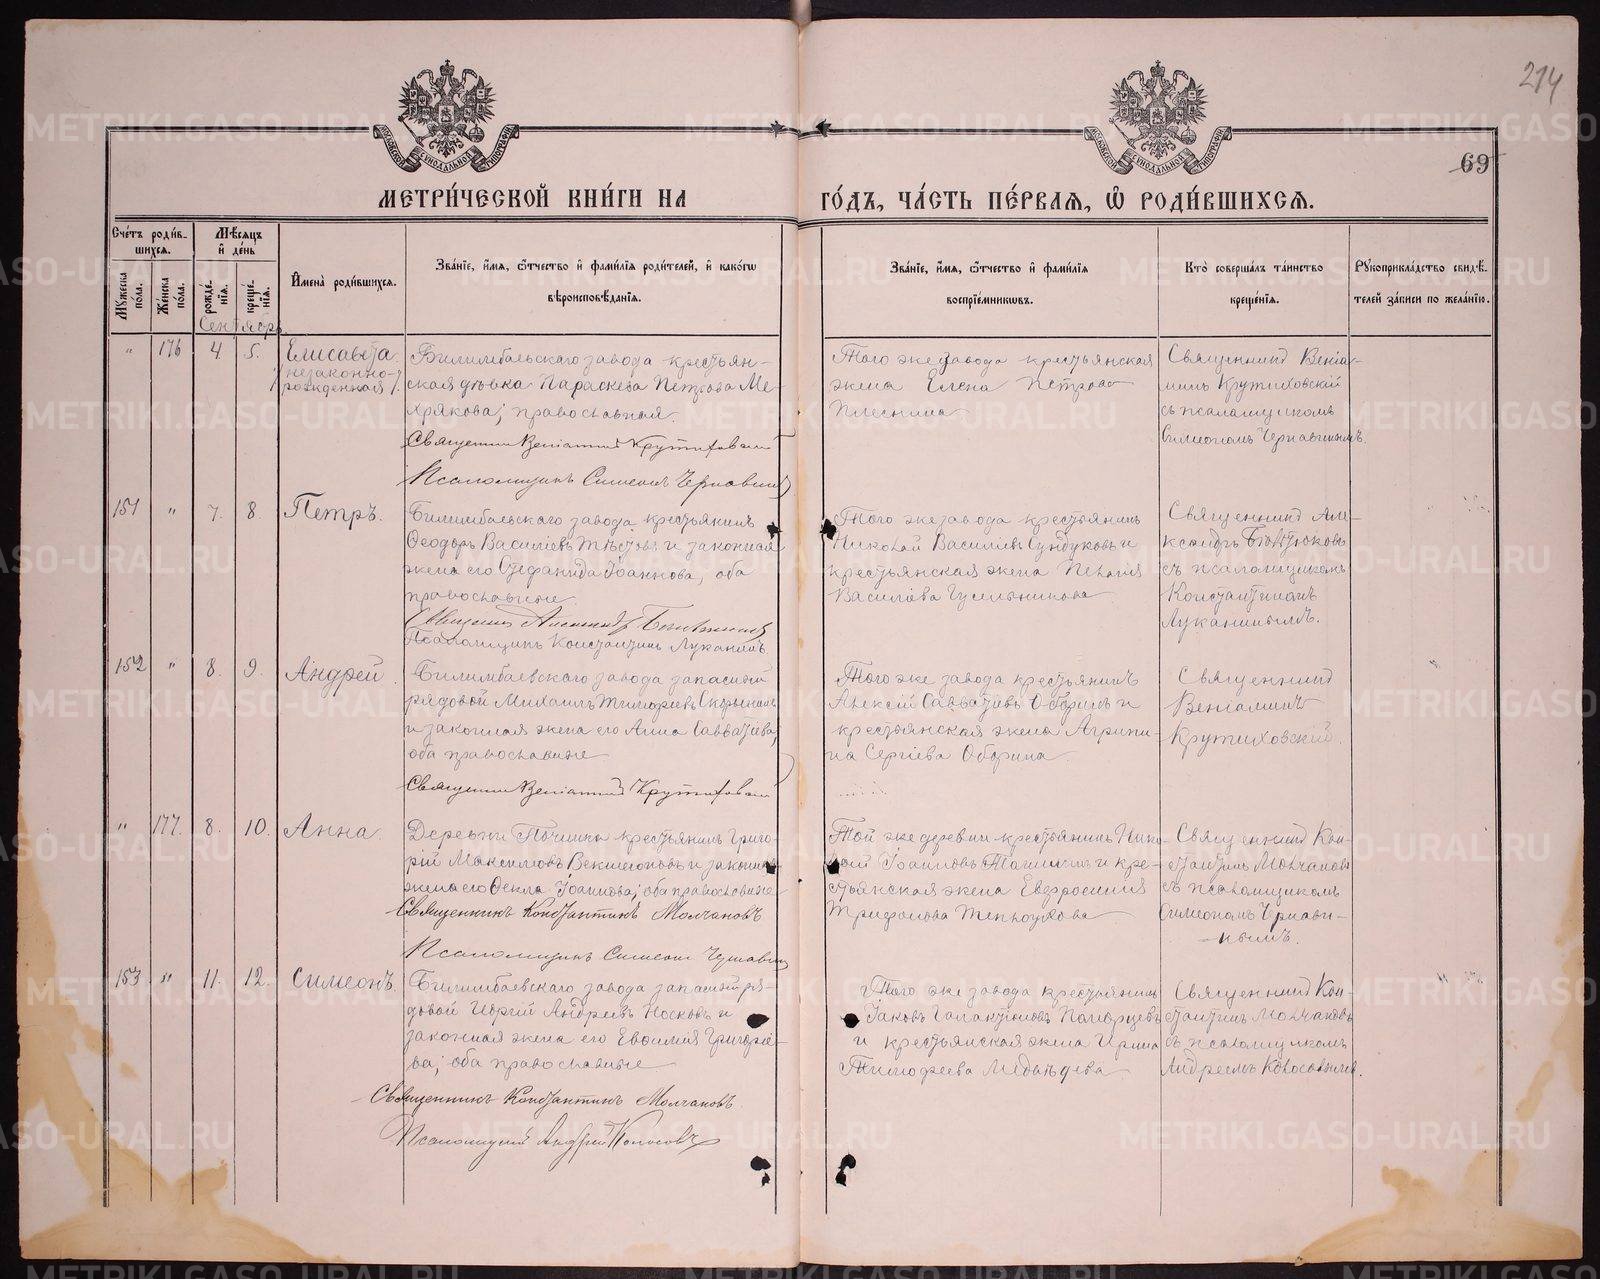 214
69
МЕТРИ́ЧЕСКОЙ КНИ́ГИ НА ГО́ДЪ, ЧА́СТЬ ПЕ́РВАЯ, Ѡ҆ РОДИ́ВШИХСЯ.
Сче́тъ роди́в-
шихся.
Мѣ́сяцъ
и҆ де́нь
Мꙋжеска
пола.
Же́нска
пола.
рожде́-
нїя.
креще́-
нїя.
И҆мена̀ роди́вшихся.
Зва́нїе, и҆́мя, ѻ҆́тчество и҆ фами́лїя роди́телей, и҆ како́гѡ
вѣроисповѣ́данїя.
Зва́нїе, и҆́мя, ѻ҆́тчество и҆ фами́лїя
воспрїе́мникѡвъ.
Кто̀ соверша́лъ та́инство
креще́нїя.
Рꙋкоприкла́дство свидѣ́-
телей за́писи по жела́нїю.
Сентябрь
" 176 4 5. Елисавета
/незаконно-
рожденная/.
Билимбаевскаго завода крестьян-
ская дѣвка Параскева Петрова Ме-
хрякова; православная
Священникъ Веніаминъ Крутиховскій
Псаломщикъ Симеонъ Чернавинъ
Того же завода крестьянская
жена Елена Петрова
Священникъ Веніа-
минъ Крутиховскій
съ псаломщикомъ
Симеономъ Чернавинымъ.
151 " 7. 8. Петръ.
Билимбаевскаго завода крестьянинъ
Ѳеодоръ Васильевъ и законная
жена его Стефанида Іоаннова, оба
православные
Псаломщикъ Константинъ Луканинъ
Того же завода крестьянинъ
Николай Васильевъ Сундуковъ и
крестьянская жена Пелагія
Васильева Гусельникова
Священникъ Але-
ксандръ
съ псаломщикомъ
Константиномъ
Луканинымъ.
152 " 8. 9. Андрей.
Билимбаевскаго завода запасный
рядовой Михаилъ Тимофеевъ
и законная жена его Анна Савватіева,
оба православные
Священникъ Веніаминъ Крутиховскій
Того же завода крестьянинъ
Алексій Савватіевъ Оборинъ и
крестьянская жена Агрипи-
на Сергіева Оборина
Священникъ
Веніаминъ
Крутиховскій.
" 177. 8. 10. Анна.
Деревни Починка крестьянинъ Григо-
рій Максимовъ и законная
жена его Ѳекла Іоаннова; оба православные
Священникъ Константинъ Молчановъ
Псаломщикъ Симеонъ Чернавинъ
Той же деревни крестьянинъ Нико-
лай Іоанновъ и кре-
стьянская жена Евфросинія
Трифонова Теплоухова
Священникъ Кон-
стантинъ Молчановъ
съ псаломщикомъ
Симеономъ Чернави-
нымъ.
153 " 11. 12. Симеонъ.
Билимбаевскаго завода запасный ря-
довой Георгій Андреевъ Носковъ и
законная жена его Евѳимія Григорье-
ва; оба православные
Священникъ Константинъ Молчановъ
Псаломщикъ Андрей Колосовъ
Того же завода крестьянинъ
Іаковъ Галактіоновъ Поморцевъ
и крестьянская жена Ирина
Тимофеева Медвѣдева
Священникъ Кон-
стантинъ Молчановъ
съ псаломщикомъ
Андреемъ Колосовымъ.
METRIKI.GASO-URAL.RU